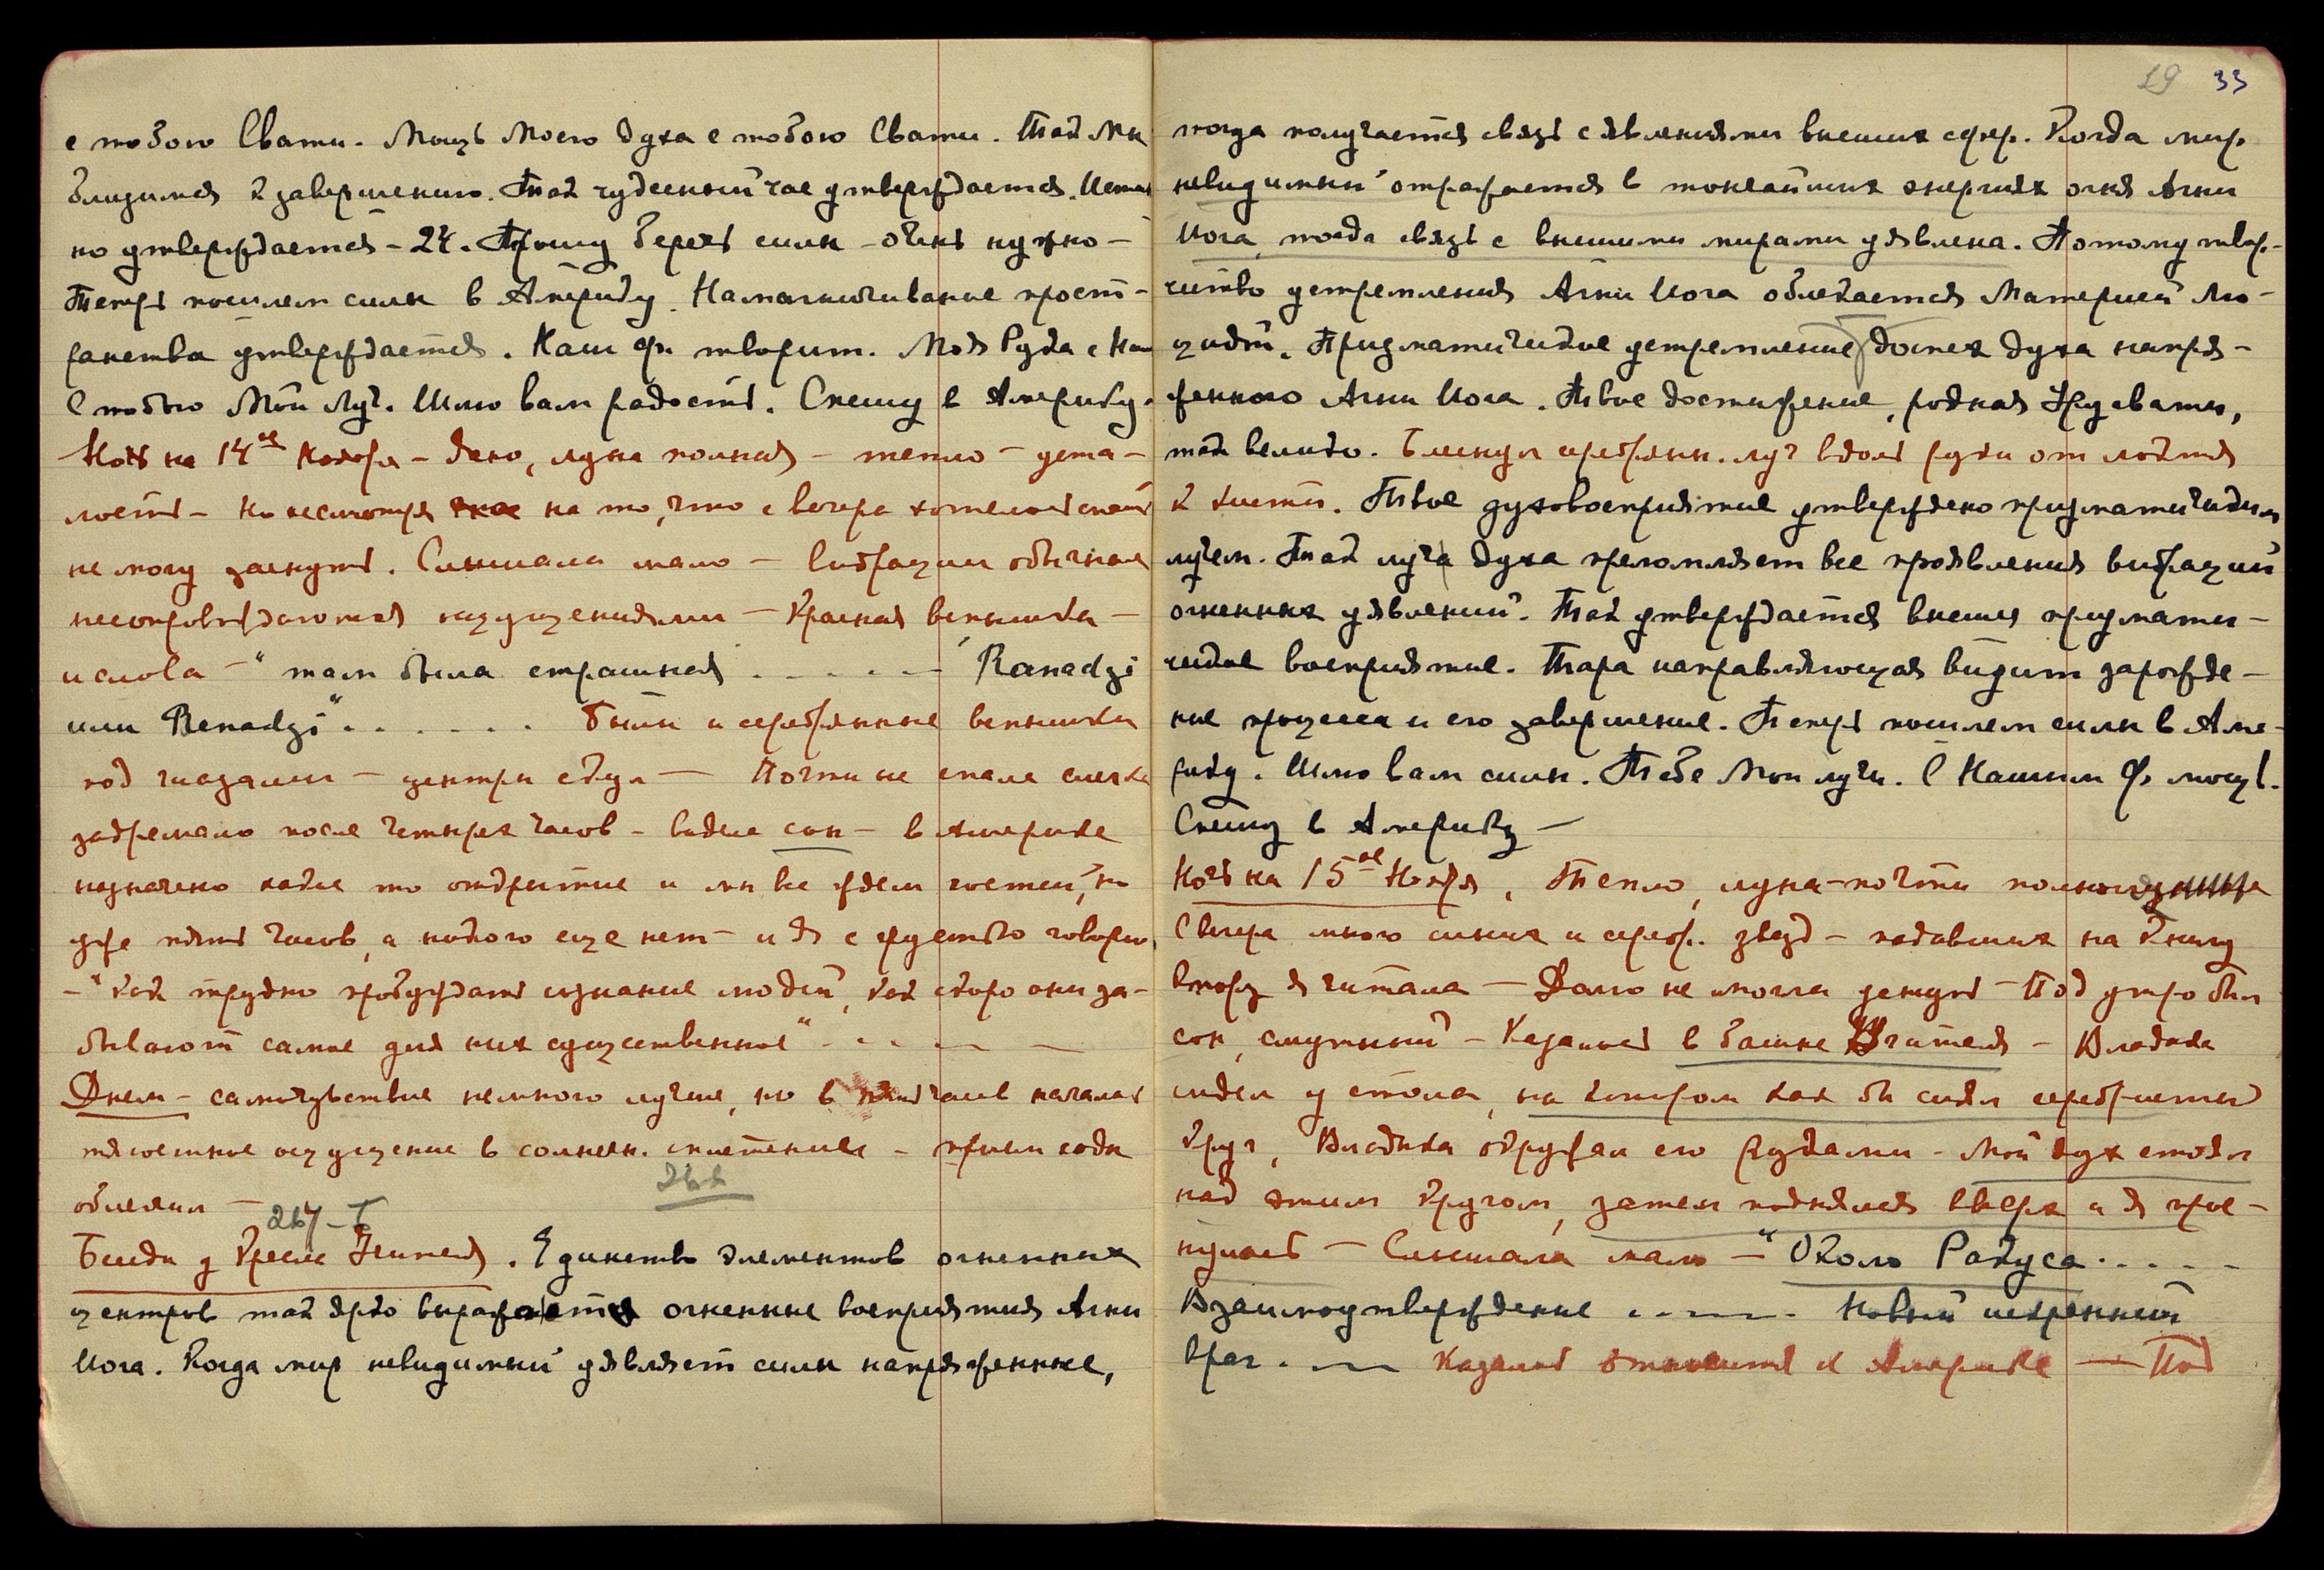 с тобою Свати. Мощь Моего духа с тобою Свати. Так Мы
близимся к завершению. Так чудесный час утверждается. Истин
но утверждается – 24. Прошу беречь силы – очень нужно –
Теперь пошлем силы в Америку. Намагничивание прост-
ранства утверждается. Наш Ф. творит. Моя Рука с Ним
С тобою Мой Луч. Шлю вам радость. Спешу в Америку.
Ночь на 14ое Ноября – ясно, луна полная – тепло – уста-
лость – но несмотря на то, что с вечера хотелось спать
не могу заснуть. Слышала мало – Вибрации обычные
несопровождаются ощущениями – Красная вспышка –
и слова – "там была страшная . . . . . . Ranadzi
или Renadzi". . . . . . . были и серебрянные вспышки
под глазами – центры скул – Почти не спала слегка
задремала после четырех часов – видела сон – в Америке
назначено какое то открытие и мы все ждем гостей, но
уже пять часов, а никого еще нет – и я с грустью говорю,
– "Как трудно пробуждать сознание людей, как скоро они за-
бывают самое для них существенное" . . . —
Днем – самочувствие немного лучше, но в пять часов началось
тягостное ощущение в солнечн. сплетении – прием соды
облегчил —
267–Б
Беседа у Кресла Учителя. Единство элементов огненных
центров так ярко выражается огненные восприятия Агни
Йога. Когда мир невидимый уявляет силы напряженные,
29 33
тогда получается связь с явлениями высших сфер. Когда мир
невидимый отражается в тончайших энергиях огня Агни
Йога, тогда связь с высшими мирами уявлена. Потому твор-
чество устремления Агни Йога облекается Материей Лю-
цидой. Призматическое устремление доспех духа напря-
женного Агни Йога. Твое достижение, родная Урусвати,
так велико. Блеснул серебрянн. луч вдоль руки от локтя
к кисти. Твое духовосприятие утверждено призматическим
лучем. Так луч духа преломляет все проявления вибраций
огненных уявлений. Так утверждается высшее призмати-
ческое восприятие. Тара направляющая видит зарожде-
ние процесса и его завершение. Теперь пошлем силы в Аме-
рику. Шлю вам силы. Тебе Мои лучи. С Нашим Ф. мощь.
Спешу в Америку –
Ночь на 15ое Ноября, Тепло, луна – почти полная
С вечера много синих и серебр. звезд – падавших на книгу
которую я читала – Долго не могла уснуть – Под утро был
сон, смутный – Казалось в башне Учителя – Владыка
сидел у стола, на котором как бы сиял серебристый
круг, Владыка окружал его Руками – Мой дух стоял
над этим кругом, затем поднялся вверх и я прос-
нулась – Слышала мало – "Около Ракуса . . . . –
Взаимоутверждение . . — — . Новый искренний
враг . — — Казалось относится к Америке — Под